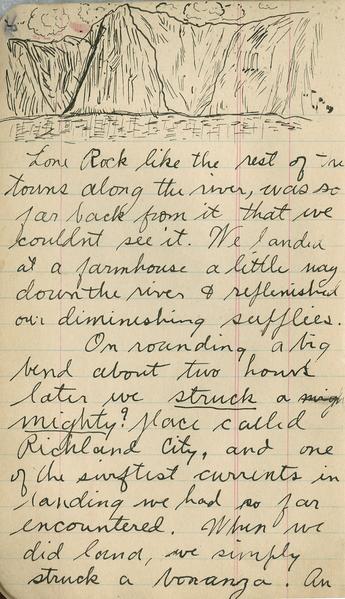 Lone Rock like the rest of the
towns along the river, was so
far back from it that we
couldnt see it. We landed
at a farmhouse a little way
down the river & replenished
our diminishing supplies.
On rounding a big
bend about two hours
later we struck a
mighty? place called
Richland City, and one
of the swiftest currents in
landing we had so far
encountered. When we
did land, we simply
struck a bonanza. An